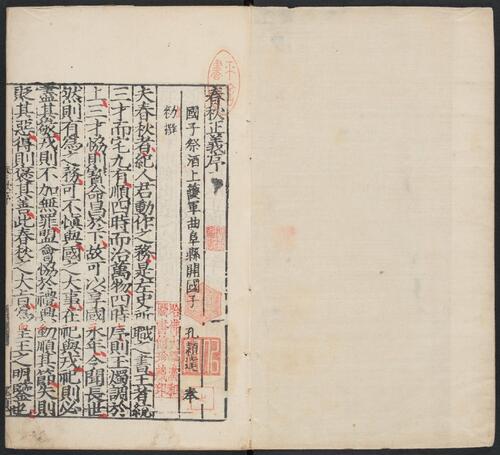 春秋正義序
國子祭酒上護軍曲阜縣開國子　孔穎達　奉
勑撰
夫春秋者紀人君動作之務是左史所職之書王者統
三才而宅九有順四時而治萬物四時序則玉燭調於
上三才恊則寶命昌於下故可以享國永年令聞長世
然則有為之務可不慎與國之大事在祀與戎祀則必
盡其敬戎則不加無罪盟會恊於禮興動順其節失則
貶其惡得則褒其善此春秋之大旨為皇王之明鑒也